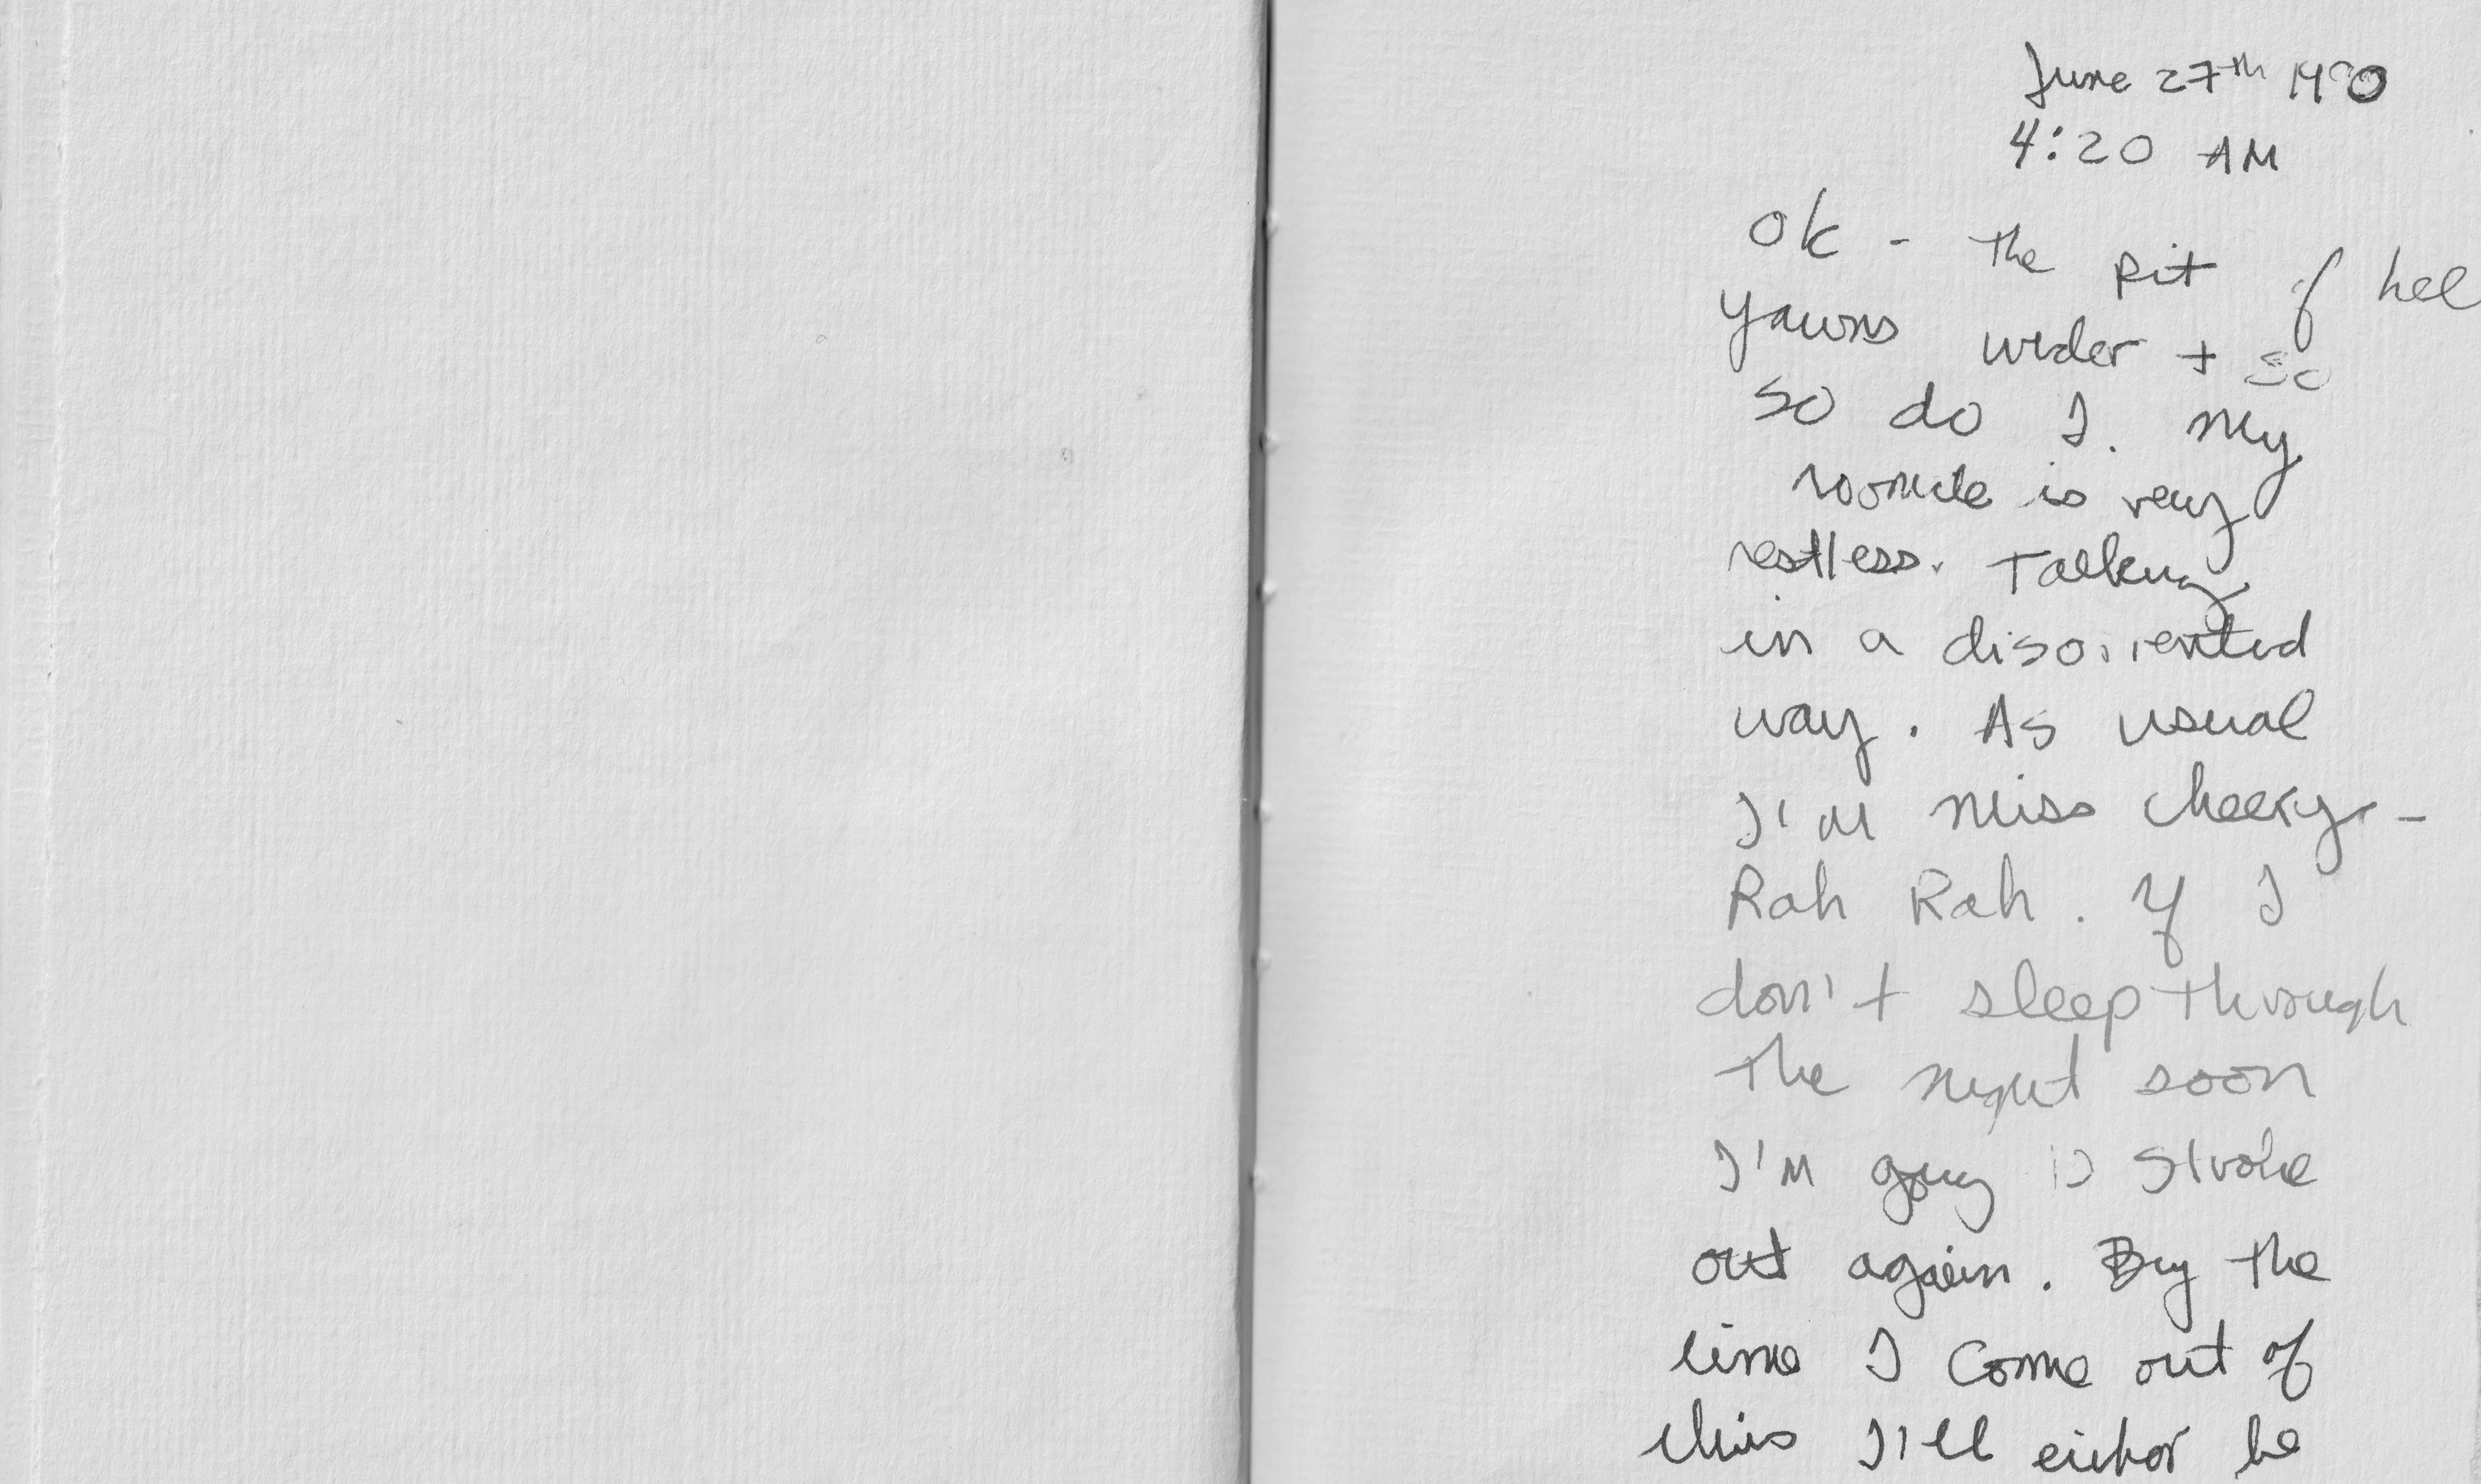 June 27th 1990
4:20 AM
OK - The pit of hel
yawns wider + so
so do I. My
roomate is very
restless. Talking
in a disoriented
way. As usual
I'm miss cheery -
Rah Rah. If I
don't sleep through
the night soon
I'm going to stroke
out again. By the
time I come out of
this I'll either be